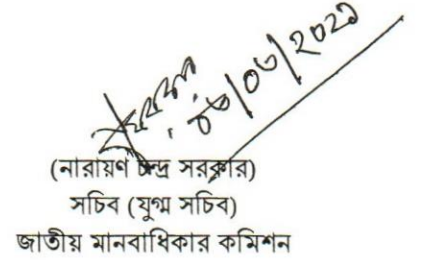 ০৬/০৬/২০২১
(নারায়ণ চন্দ্র সরকার)
সচিব (যুগ্ম সচিব)
জাতীয় মানবাধিকার কমিশন